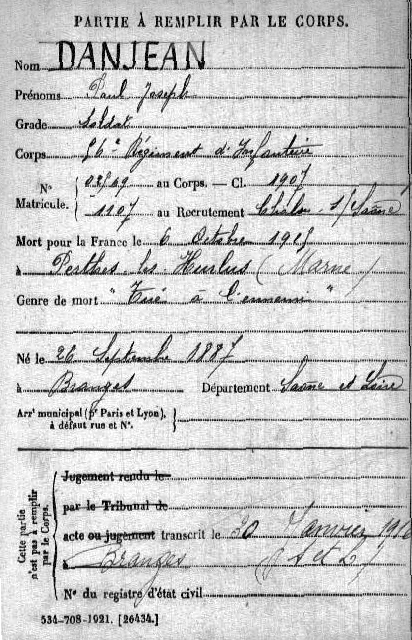 PARTIE À REMPLIR PAR LE CORPS.
Nom DANJEAN
Prénoms Paul Joseph
Grade Soldat
Corps 56e Régiment d'Infanterie
N° Matricule. { au Corps. — Cl. 1907
1107 au Recrutement Chalon s/Saône
Mort pour la France le 6 Octobre 1915
à Perthes-les-Hurlus (Marne)
Genre de mort "Tué à l'ennemi"
Né le 26 Septembre 1887
à Branges Département Saône et Loire
Arrt municipal (pr Paris et Lyon),
à défaut rue et N°.
Cette partie n'est pas à remplir par le Corps.
Jugement rendu le
par le Tribunal de
acte ou jugement transcrit le 30 Janvier 1916
à Branges (S et L)
N° du registre d'état civil
534-708-1921. [26434.]